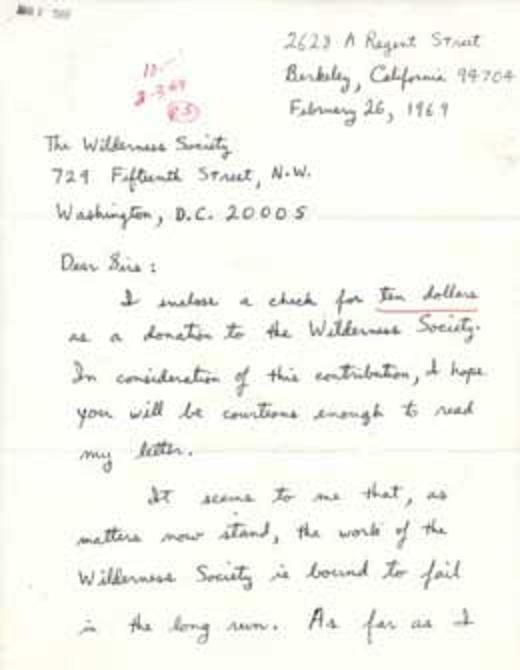 2628 A Regent Street
Berkeley, California 94704
February 26, 1969
10.—
3-3-69
The Wilderness Society
729 Fifteenth Street, N.W.
Washington, D.C. 20005
Dear Sirs:
I enclose a check for ten dollars
as a donation to the Wilderness Society.
In consideration of this contribution, I hope
you will be courteous enough to read
my letter.
It seems to me that, as
matters now stand, the work of the
Wilderness Society is bound to fail
in the long run. As far as I